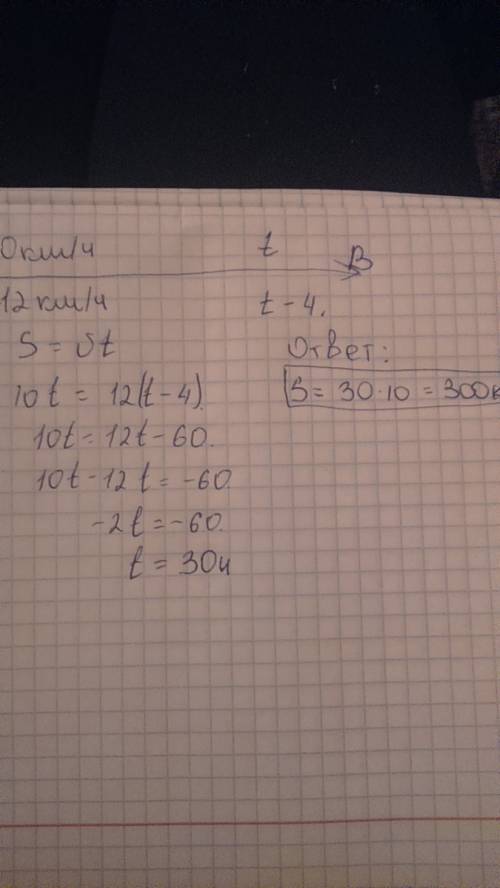 0км/ч t B
12км/ч t - 4.
S = υt
Ответ:
10t = 12(t-4).
S = 30·10 = 300к
10t = 12t - 60.
10t - 12t = -60.
-2t = -60.
t = 30ч